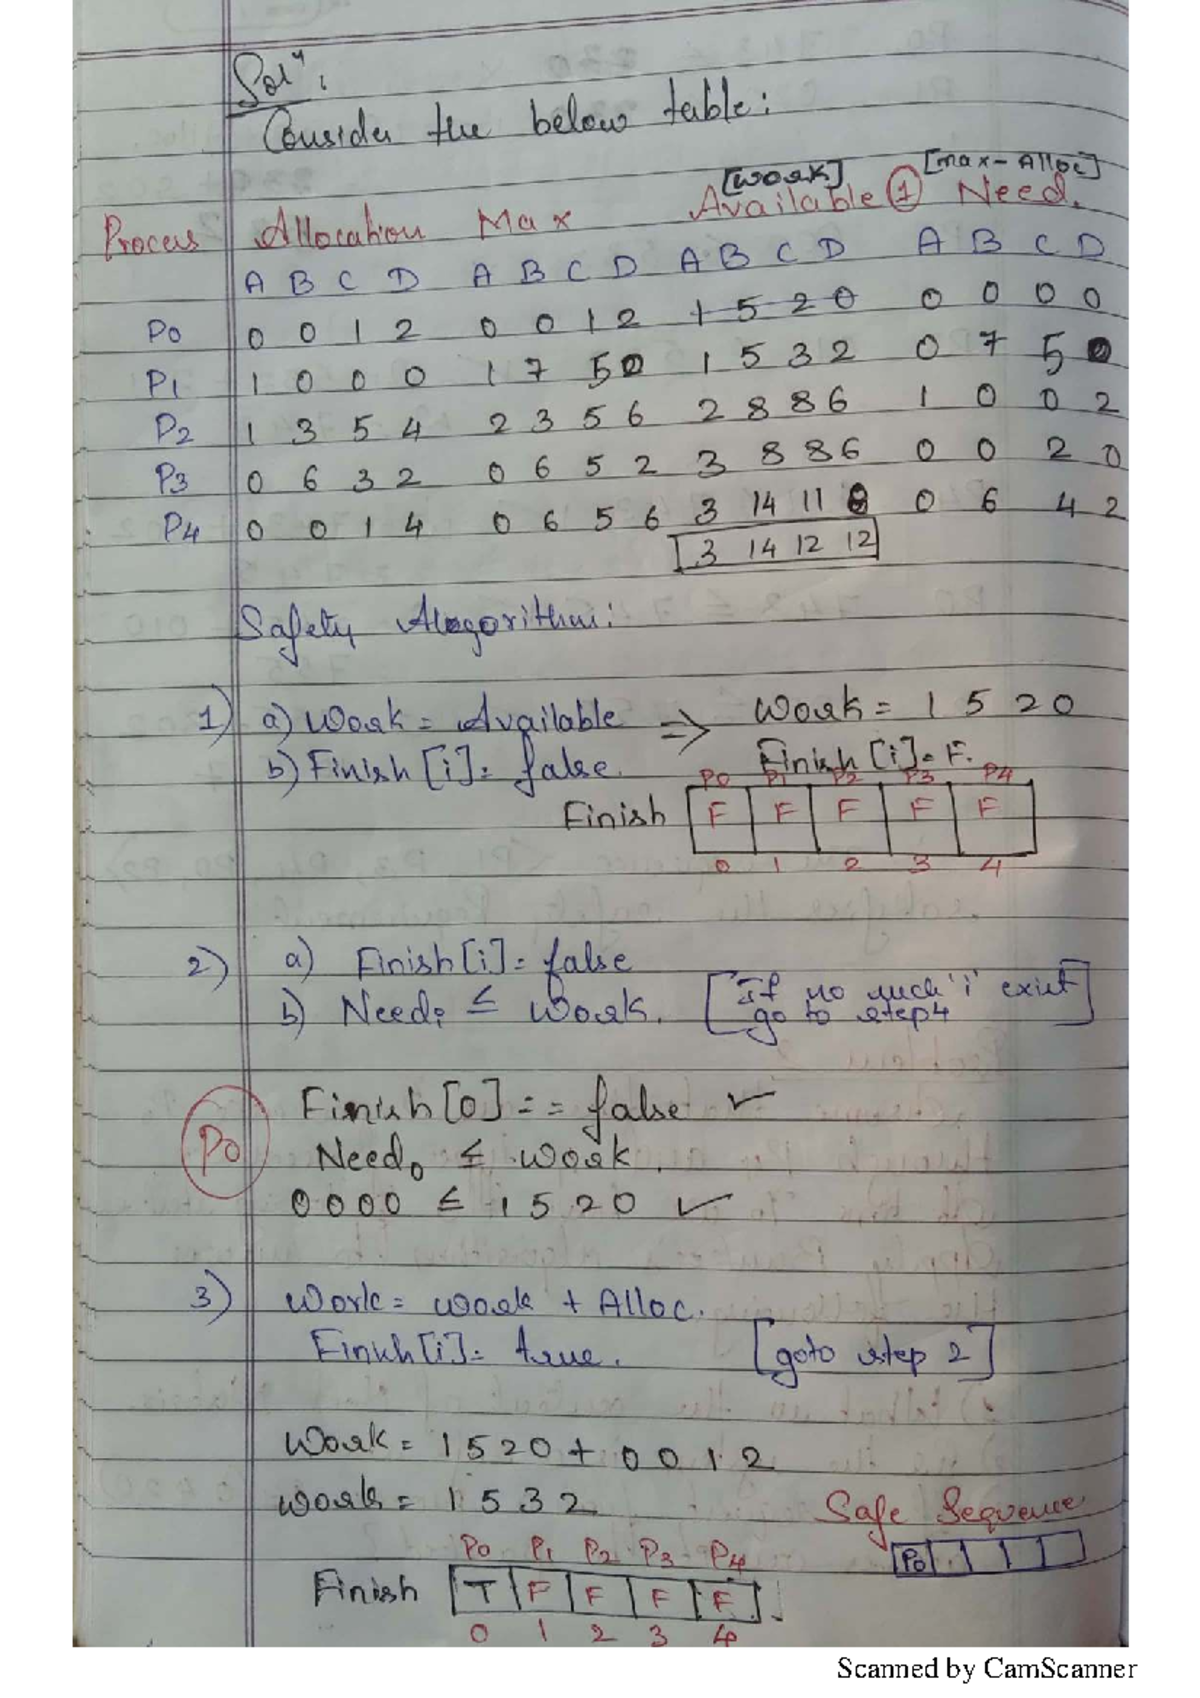 Solⁿ:
Consider the below table:
[work] [max-Alloc]
Process Allocation Max Available ① Need.
A B C D A B C D A B C D A B C D
P0 0 0 1 2 0 0 1 2 1 5 2 0 0 0 0 0
P1 1 0 0 0 1 7 5 0 1 5 3 2 0 7 5 0
P2 1 3 5 4 2 3 5 6 2 8 8 6 1 0 0 2
P3 0 6 3 2 0 6 5 2 3 8 8 6 0 0 2 0
P4 0 0 1 4 0 6 5 6 3 14 11 8 0 6 4 2
3 14 12 12
Safety Alogorithm:
1) a) Work = Available => Work = 1 5 2 0
b) Finish [i] = false. Finish [i] = F.
P0 P1 P2 P3 P4
Finish F F F F F
0 1 2 3 4
2) a) Finish [i] = false
b) Needi ≤ Work. [If no such 'i' exist
go to step 4]
Finish [0] == false ✓
P0 Need0 ≤ work.
0 0 0 0 ≤ 1 5 2 0 ✓
3) Work = work + Alloc.
Finish [i] = true. [goto step 2]
Work = 1 5 2 0 + 0 0 1 2
work = 1 5 3 2 Safe Sequence
P0 P1 P2 P3 P4 P0
Finish T F F F F
0 1 2 3 4
Scanned by CamScanner